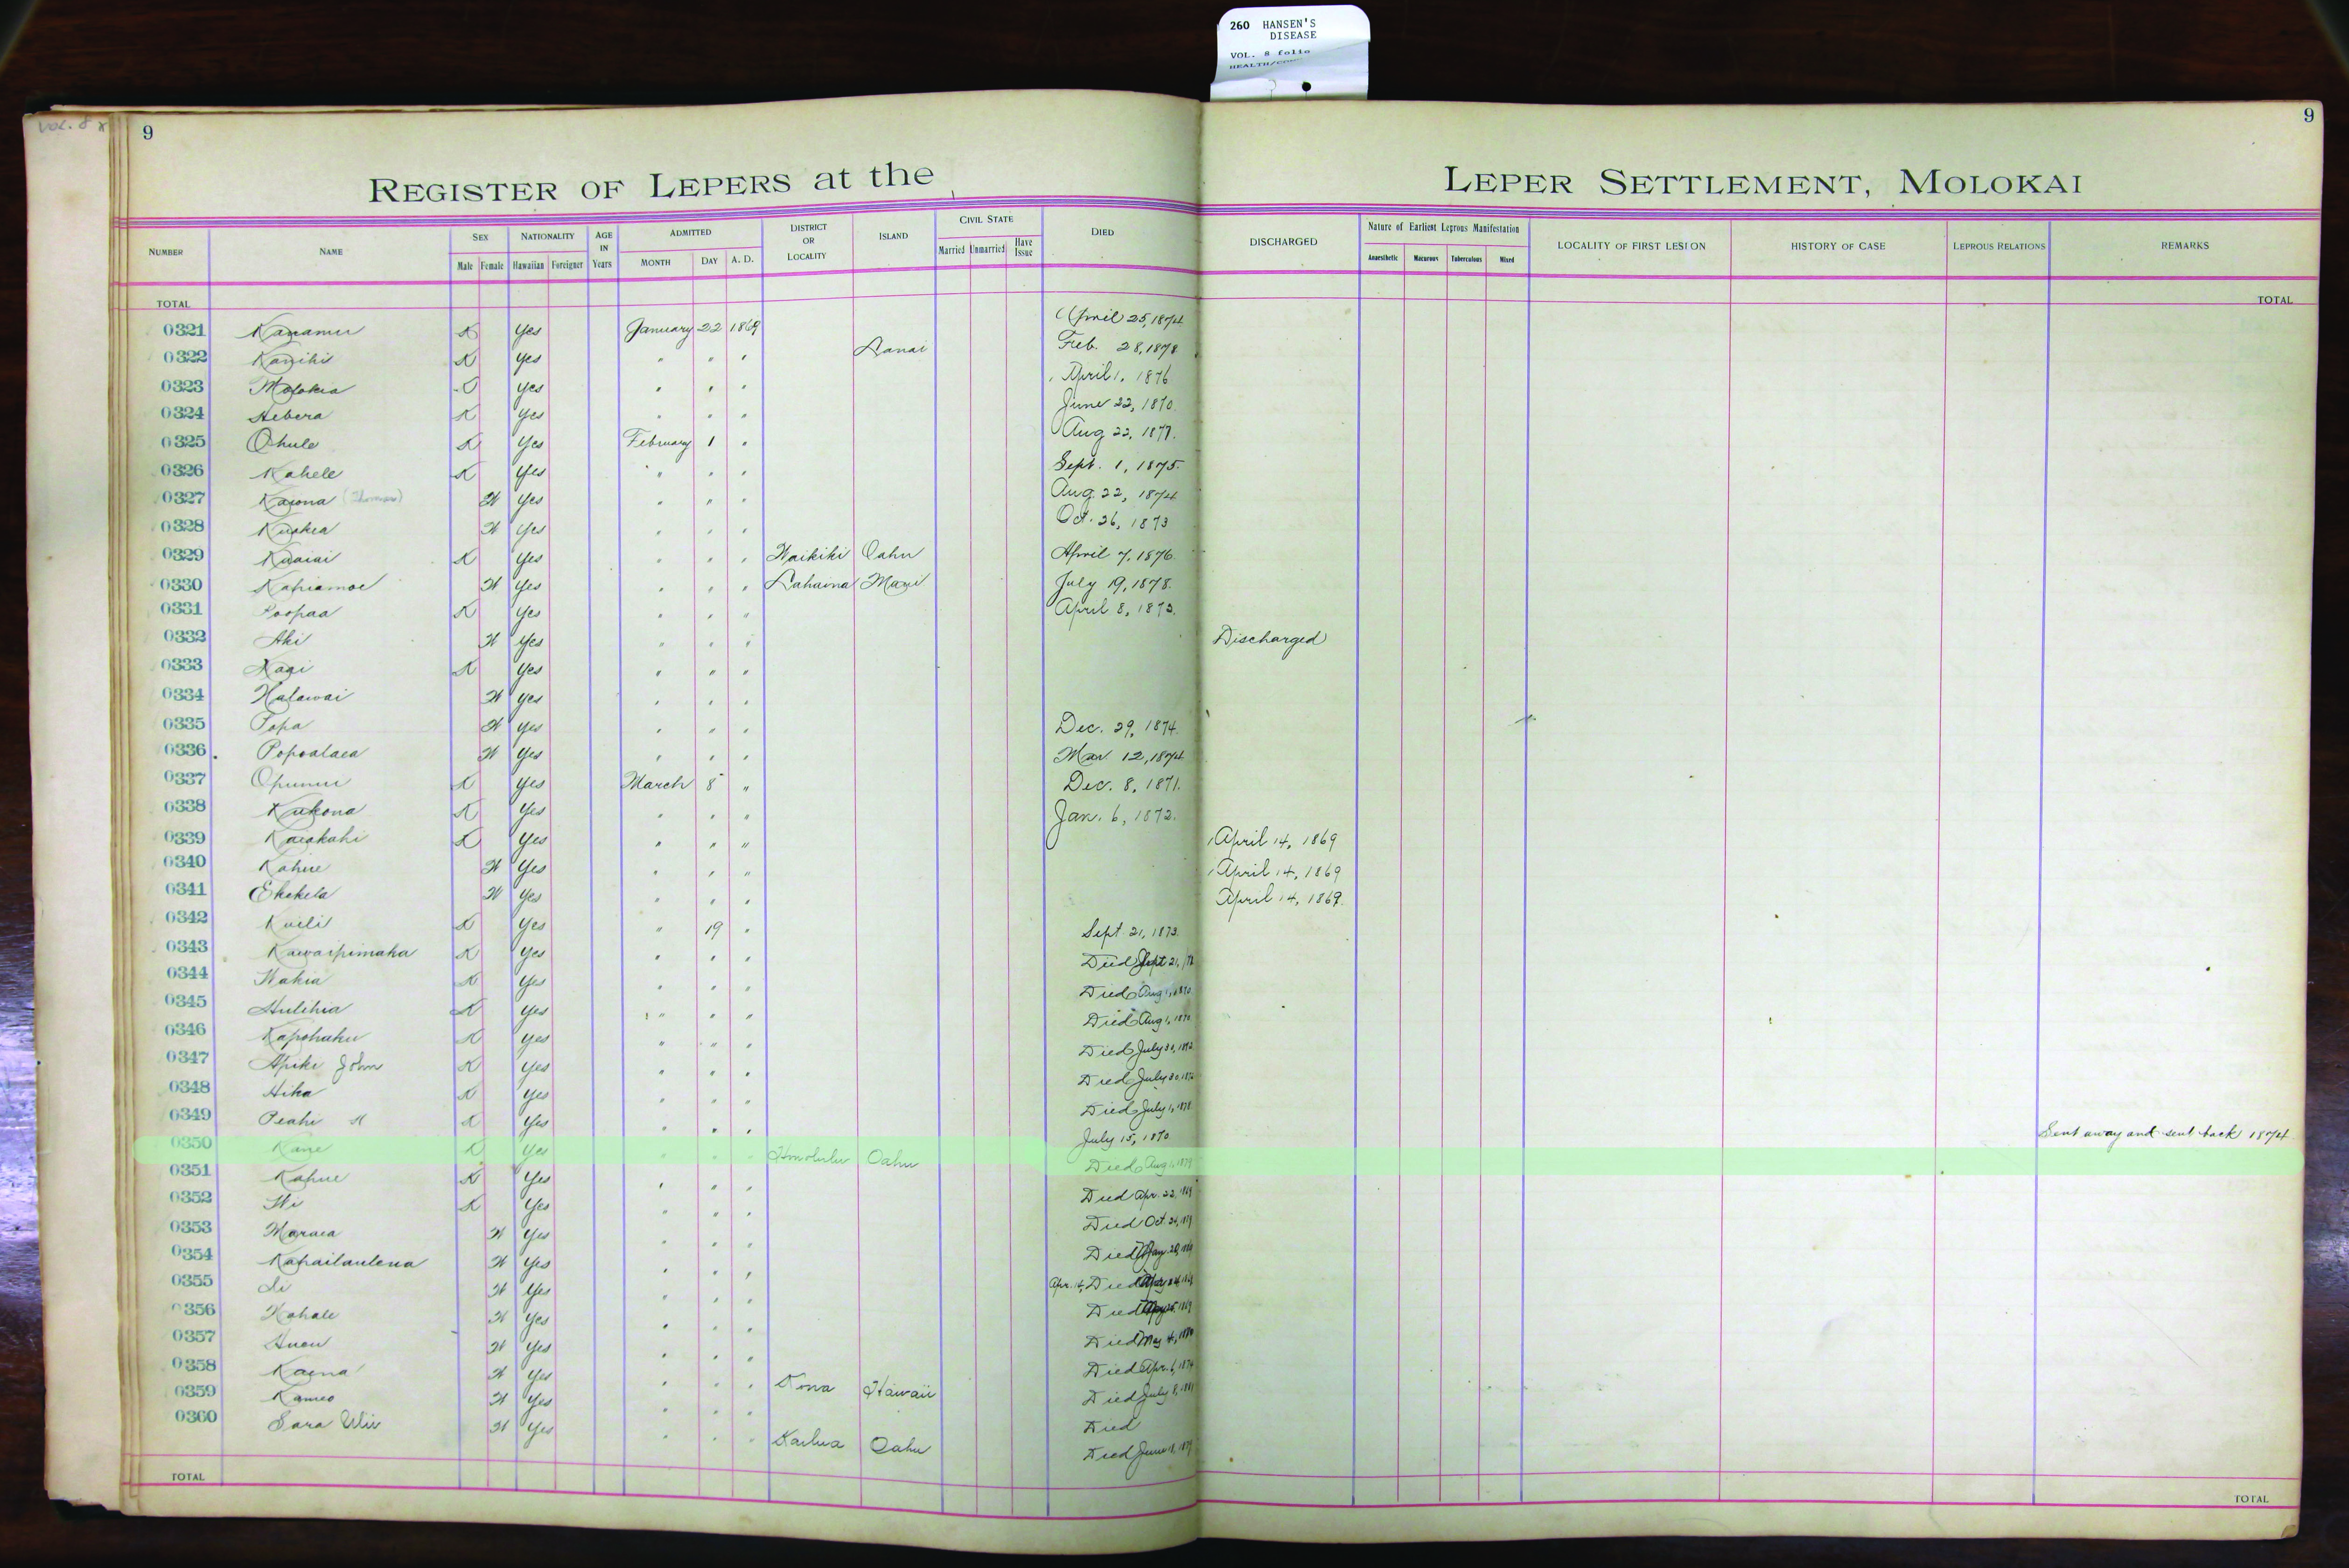 260 HANSEN'S
DISEASE
VOL. 8 folio
VOL. 8
9
9
REGISTER OF LEPERS at the LEPER SETTLEMENT, MOLOKAI
NUMBER NAME SEX NATIONALITY AGE IN Years ADMITTED DISTRICT OR LOCALITY ISLAND CIVIL STATE DIED DISCHARGED Nature of Earliest Leprous Manifestation LOCALITY OF FIRST LESION HISTORY OF CASE LEPROUS RELATIONS REMARKS
Male Female Hawaiian Foreigner MONTH DAY A. D. Married Unmarried Have Issue Anaesthetic Macurous Tuberculous Mixed
TOTAL TOTAL
0321 Kanamu K Yes January 22 1869 April 25, 1874
0322 Kanihi K Yes " " " Lanai Feb. 28, 1878
0323 Molokia K Yes " " " April 1, 1876
0324 Hebera K Yes " " " June 22, 1870
0325 Ohule K Yes February 1 " Aug 22, 1877
0326 Kahele K Yes " " " Sept. 1, 1875
0327 Kaiona (Thomas) W Yes " " " Aug. 22, 1874
0328 W Yes " " " Oct. 26, 1873
0329 Kuaiai K Yes " " " Waikiki Oahu April 7, 1876
0330 Kahiamoe W Yes " " " Lahaina Maui July 19, 1878
0331 Poopaa K Yes " " " April 8, 1873
0332 Aki W Yes " " " Discharged
0333 K Yes " " "
0334 Halawai W Yes " " "
0335 Popa W Yes " " " Dec. 29, 1874
0336 Popoalaea W Yes " " " Mar 12, 1874
0337 Opunui K Yes March 8 " Dec. 8, 1871
0338 Kukona K Yes " " " Jan. 6, 1872
0339 Kaiakahi K Yes " " " April 14, 1869
0340 Kahue W Yes " " " April 14, 1869
0341 Ekekela W Yes " " " April 14, 1869
0342 Kuili K Yes " 19 " Sept. 21, 1873
0343 Kawaipimaka K Yes " " " Died Sept 21,
0344 Wahia K Yes " " " Died Aug 1, 1870
0345 Hulihia K Yes " " " Died Aug 1, 1870
0346 Kapohaku K Yes " " " Died July 30, 1872
0347 Apiki John K Yes " " " Died July 30, 1872
0348 Hika K Yes " " " Died July 1, 1878
0349 Peahi K Yes " " " July 15, 1870 Sent away and sent back 1874
0350 Kane K Yes " " " Honolulu Oahu Died Aug 1, 1879
0351 Kahue K Yes " " " Died Apr. 22, 1869
0352 K Yes " " " Died Oct. 24,
0353 Maraea W Yes " " " Died
0354 Kahailaulena W Yes " " " Apr. 14, Died
0355 W Yes " " " Died
0356 Kahale W Yes " " " Died May 4,
0357 W Yes " " " Died Apr. 6, 1874
0358 Kaena W Yes " " " Kona Hawaii Died July 8,
0359 Kameo W Yes " " " Died
0360 Sara W Yes " " " Kailua Oahu Died June
TOTAL TOTAL